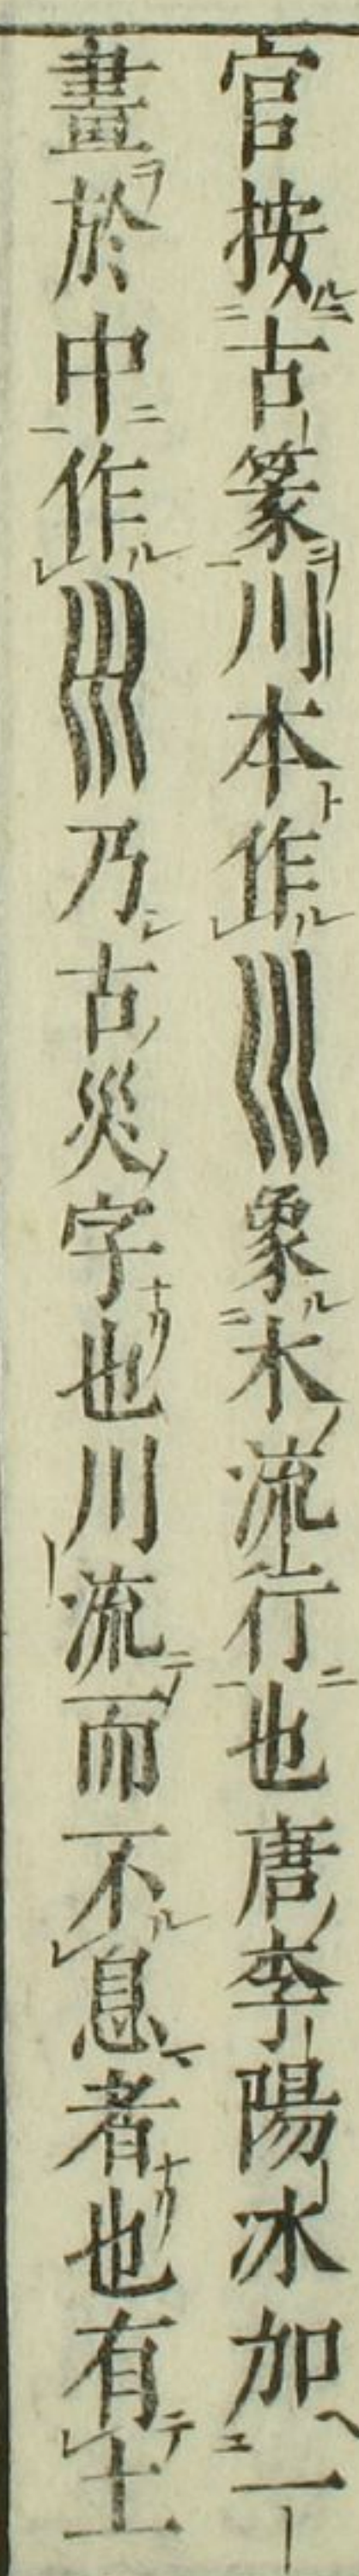 官按古篆川本作巛象水流行也唐李陽冰加一
畫於中作𡿧乃古災字也川流而不息者也有土